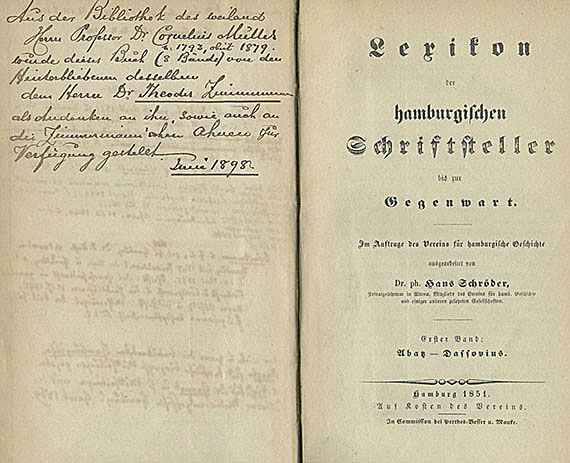 Aus der Bibliothek des weiland
Herrn Professor Dr Cornelius Müller
n. 1793, obiit 1879.
wurde dieses Buch (8 Bände) von den
Hinterbliebenen desselben
dem Herrn Dr Theodor Zimmermann
als Andenken an ihn, sowie auch an
die Zimmermann'schen Ahnen zur
Verfügung gestellt.
Juni 1898.
Lexikon
der
hamburgischen
Schriftsteller
bis zur
Gegenwart.
Im Auftrage des Vereins für hamburgische Geschichte
ausgearbeitet von
Dr. ph. Hans Schröder,
Privatgelehrtem in Altona, Mitgliede des Vereins für hamb. Geschichte
und einiger anderen gelehrten Gesellschaften.
Erster Band:
Abatz — Dassovius.
Hamburg 1851.
Auf Kosten des Vereins.
In Commission bei Perthes-Besser u. Mauke.